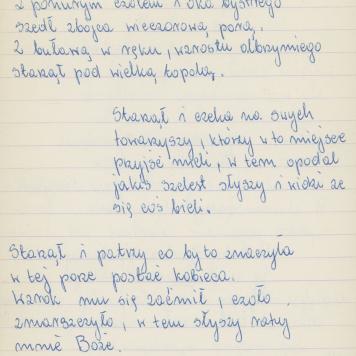 z ponurym czołem i oka bystrego
szedł zbójca wieczorową porą.
z buławą w ręku, wzrostu olbrzymiego
stanął pod wielką topolą.
Stanął i czeka na swych
towarzyszy, którzy w to miejsce
przyjść mieli, w tem opodal
jakiś szelest słyszy i widzi że
się coś bieli.
Stanął i patrzy co by to znaczyła
w tej porze postać kobieca.
Wzrok mu się zaćmił, czoło
zmarszczyło, w tem słyszy ratuj
mnie Boże.